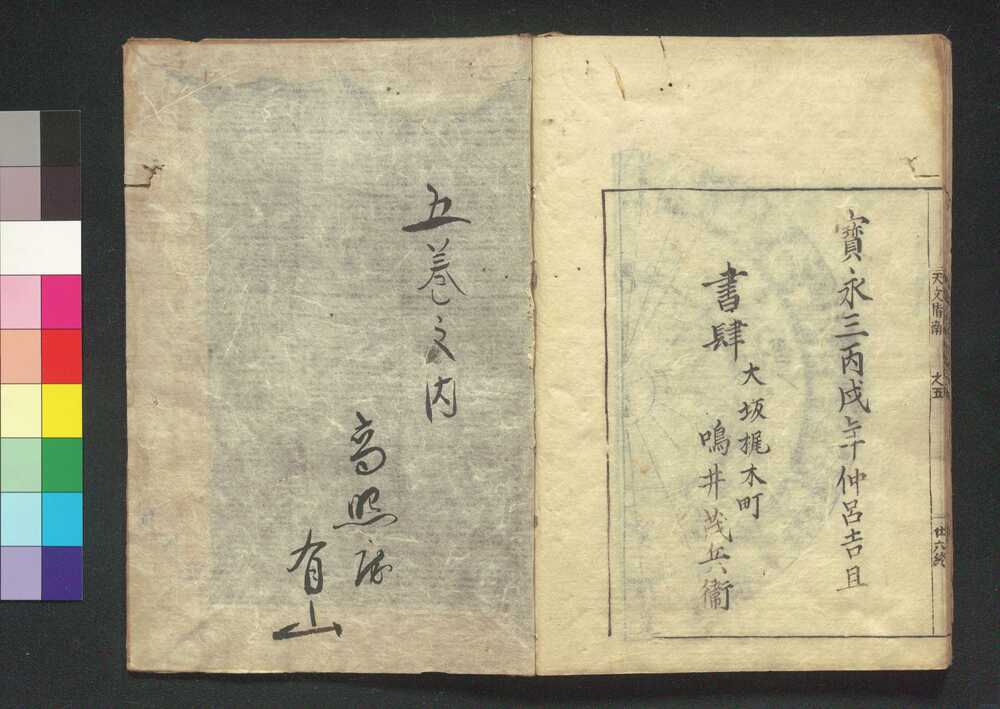 天文指南 之五 廿六終
寶永三丙戌年仲呂吉旦
書肆
大坂梶木町
鳴井茂兵衛
五巻之内
高照
有山